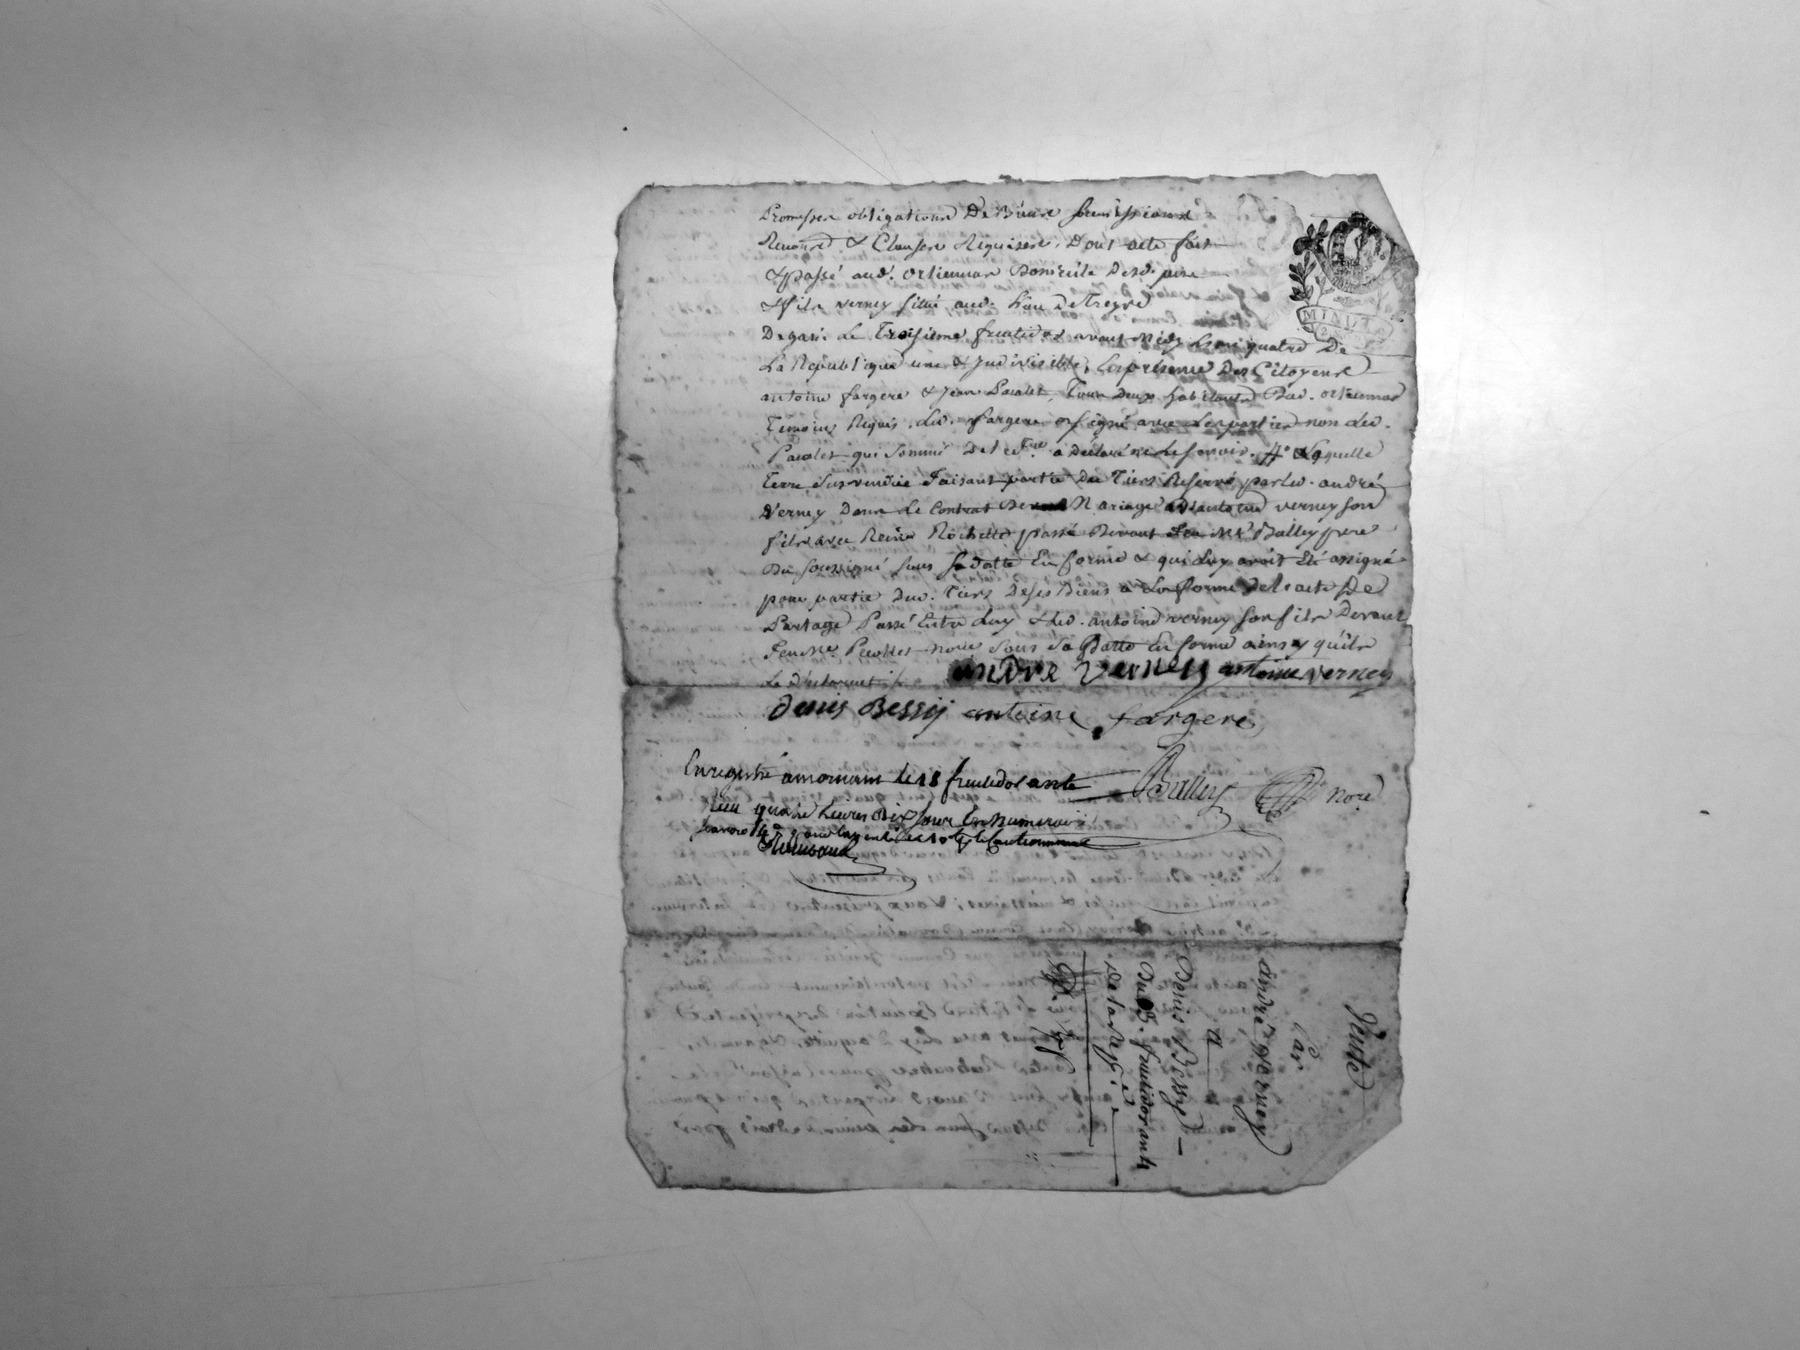 Promesses obligations De Biens soumissions
Renonces & Clauses Requises. Dont acte fait
& passé aud. ortiennas Domicile Desd. pere
& fils verney sittué aud. Lieu De
Le Troisieme fructidor avant Midy L'an quatre De
La République une & Indivisible, En présence Des Citoyens
antoine fargere & Jean Pacalet, Tous Deux habitants Dud. ortiennas
Temoins Requis, Led. fargere a signé avec Les parties non Led.
Pacalet qui sommé De le faire a Déclaré ne Le scavoir. & Laquelle
Terre Susvendüe Faisant partie Du Tiers Reservé par Led. andré
Verney Dans Le Contrat De Mariage D'antoine verney son
fils avec Reine Rochette passé Devant feu Me Balley pere
Du soussigné sous sa datte En forme & qui Luy avoit Eté assigné
pour partie Dud. Tiers De ses Biens a La forme de l'acte De
Partage Passé Entre Luy & Led. antoine verney son fils Devant
feu Me. nore sous Sa Datte En forme ainsy qu'ils
Le Déclarent
andre verney antoine verney
Denis Bessy antoine fargere
Balley nore
Enregistré a mornant le 18 fructidor an 4e
Reçu quatre Livres Dix sous En numeraire
Vente
Par
André Verney
a
Denis Bessy
Du 3. fructidor an 4e
De la Rep.
MINUTE